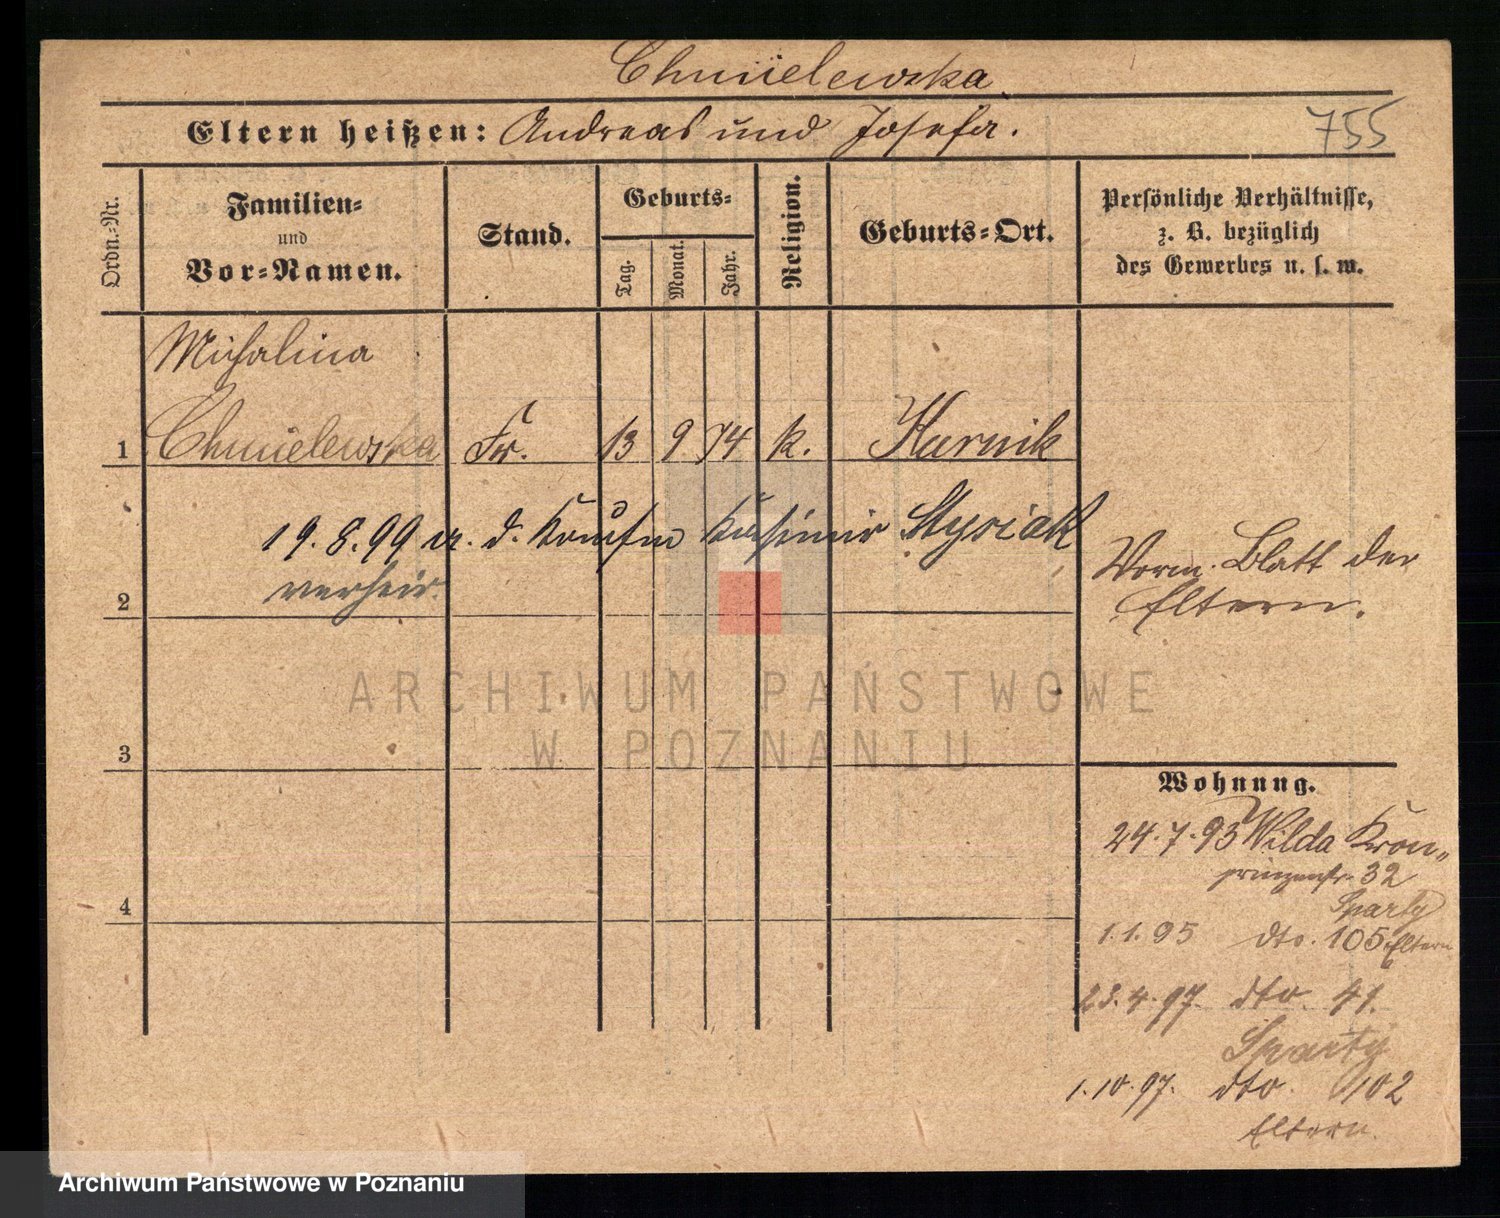 Chmielewska
Eltern heißen: Andreas und Josefa.
755
Ordn.-Nr.
Familien-
und
Vor-Namen.
Stand.
Geburts-
Tag.
Monat.
Jahr.
Religion.
Geburts-Ort.
Persönliche Verhältnisse,
z. B. bezüglich
des Gewerbes u. s. w.
Michalina
1 Chmielewska Fr. 13 9 74 k. Kurnik
19.8.99 m. d. Kaufm Kasimir Stysiak
verheir.
2
Vorm. Blatt der
Eltern.
3
Wohnung.
24.7.93 Wilda Kron-
prinzenstr. 32
4
1.1.95 dto. 105 Eltern
23.4.97. dto. 41.
1.10.97. dto. 102
Eltern.
ARCHIWUM PAŃSTWOWE
W POZNANIU
Archiwum Państwowe w Poznaniu